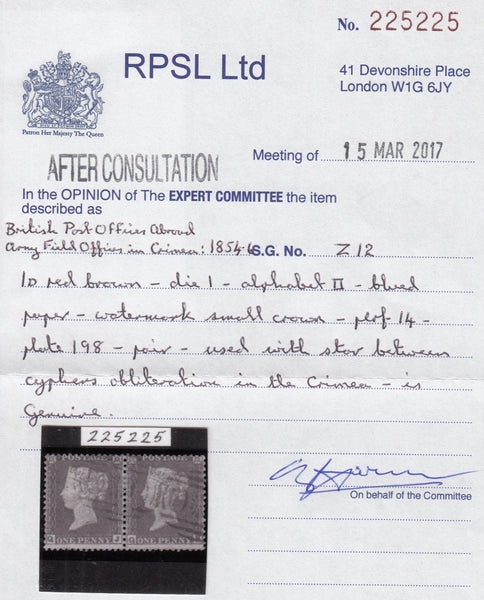 No. 225225
RPSL Ltd
41 Devonshire Place
London W1G 6JY
Patron Her Majesty The Queen
AFTER CONSULTATION
Meeting of 15 MAR 2017
In the OPINION of The EXPERT COMMITTEE the item
described as
British Post Offices Abroad
Army Field Offices in Crimea: 1854-6 S.G. No. Z12
1D red brown - die 1 - alphabet II - blued
paper - watermark small crown - perf 14 -
plate 198 - pair - used with star between
cyphers obliteration in the Crimea - is
genuine.
225225
On behalf of the Committee
G J G
ONE PENNY ONE PENNY